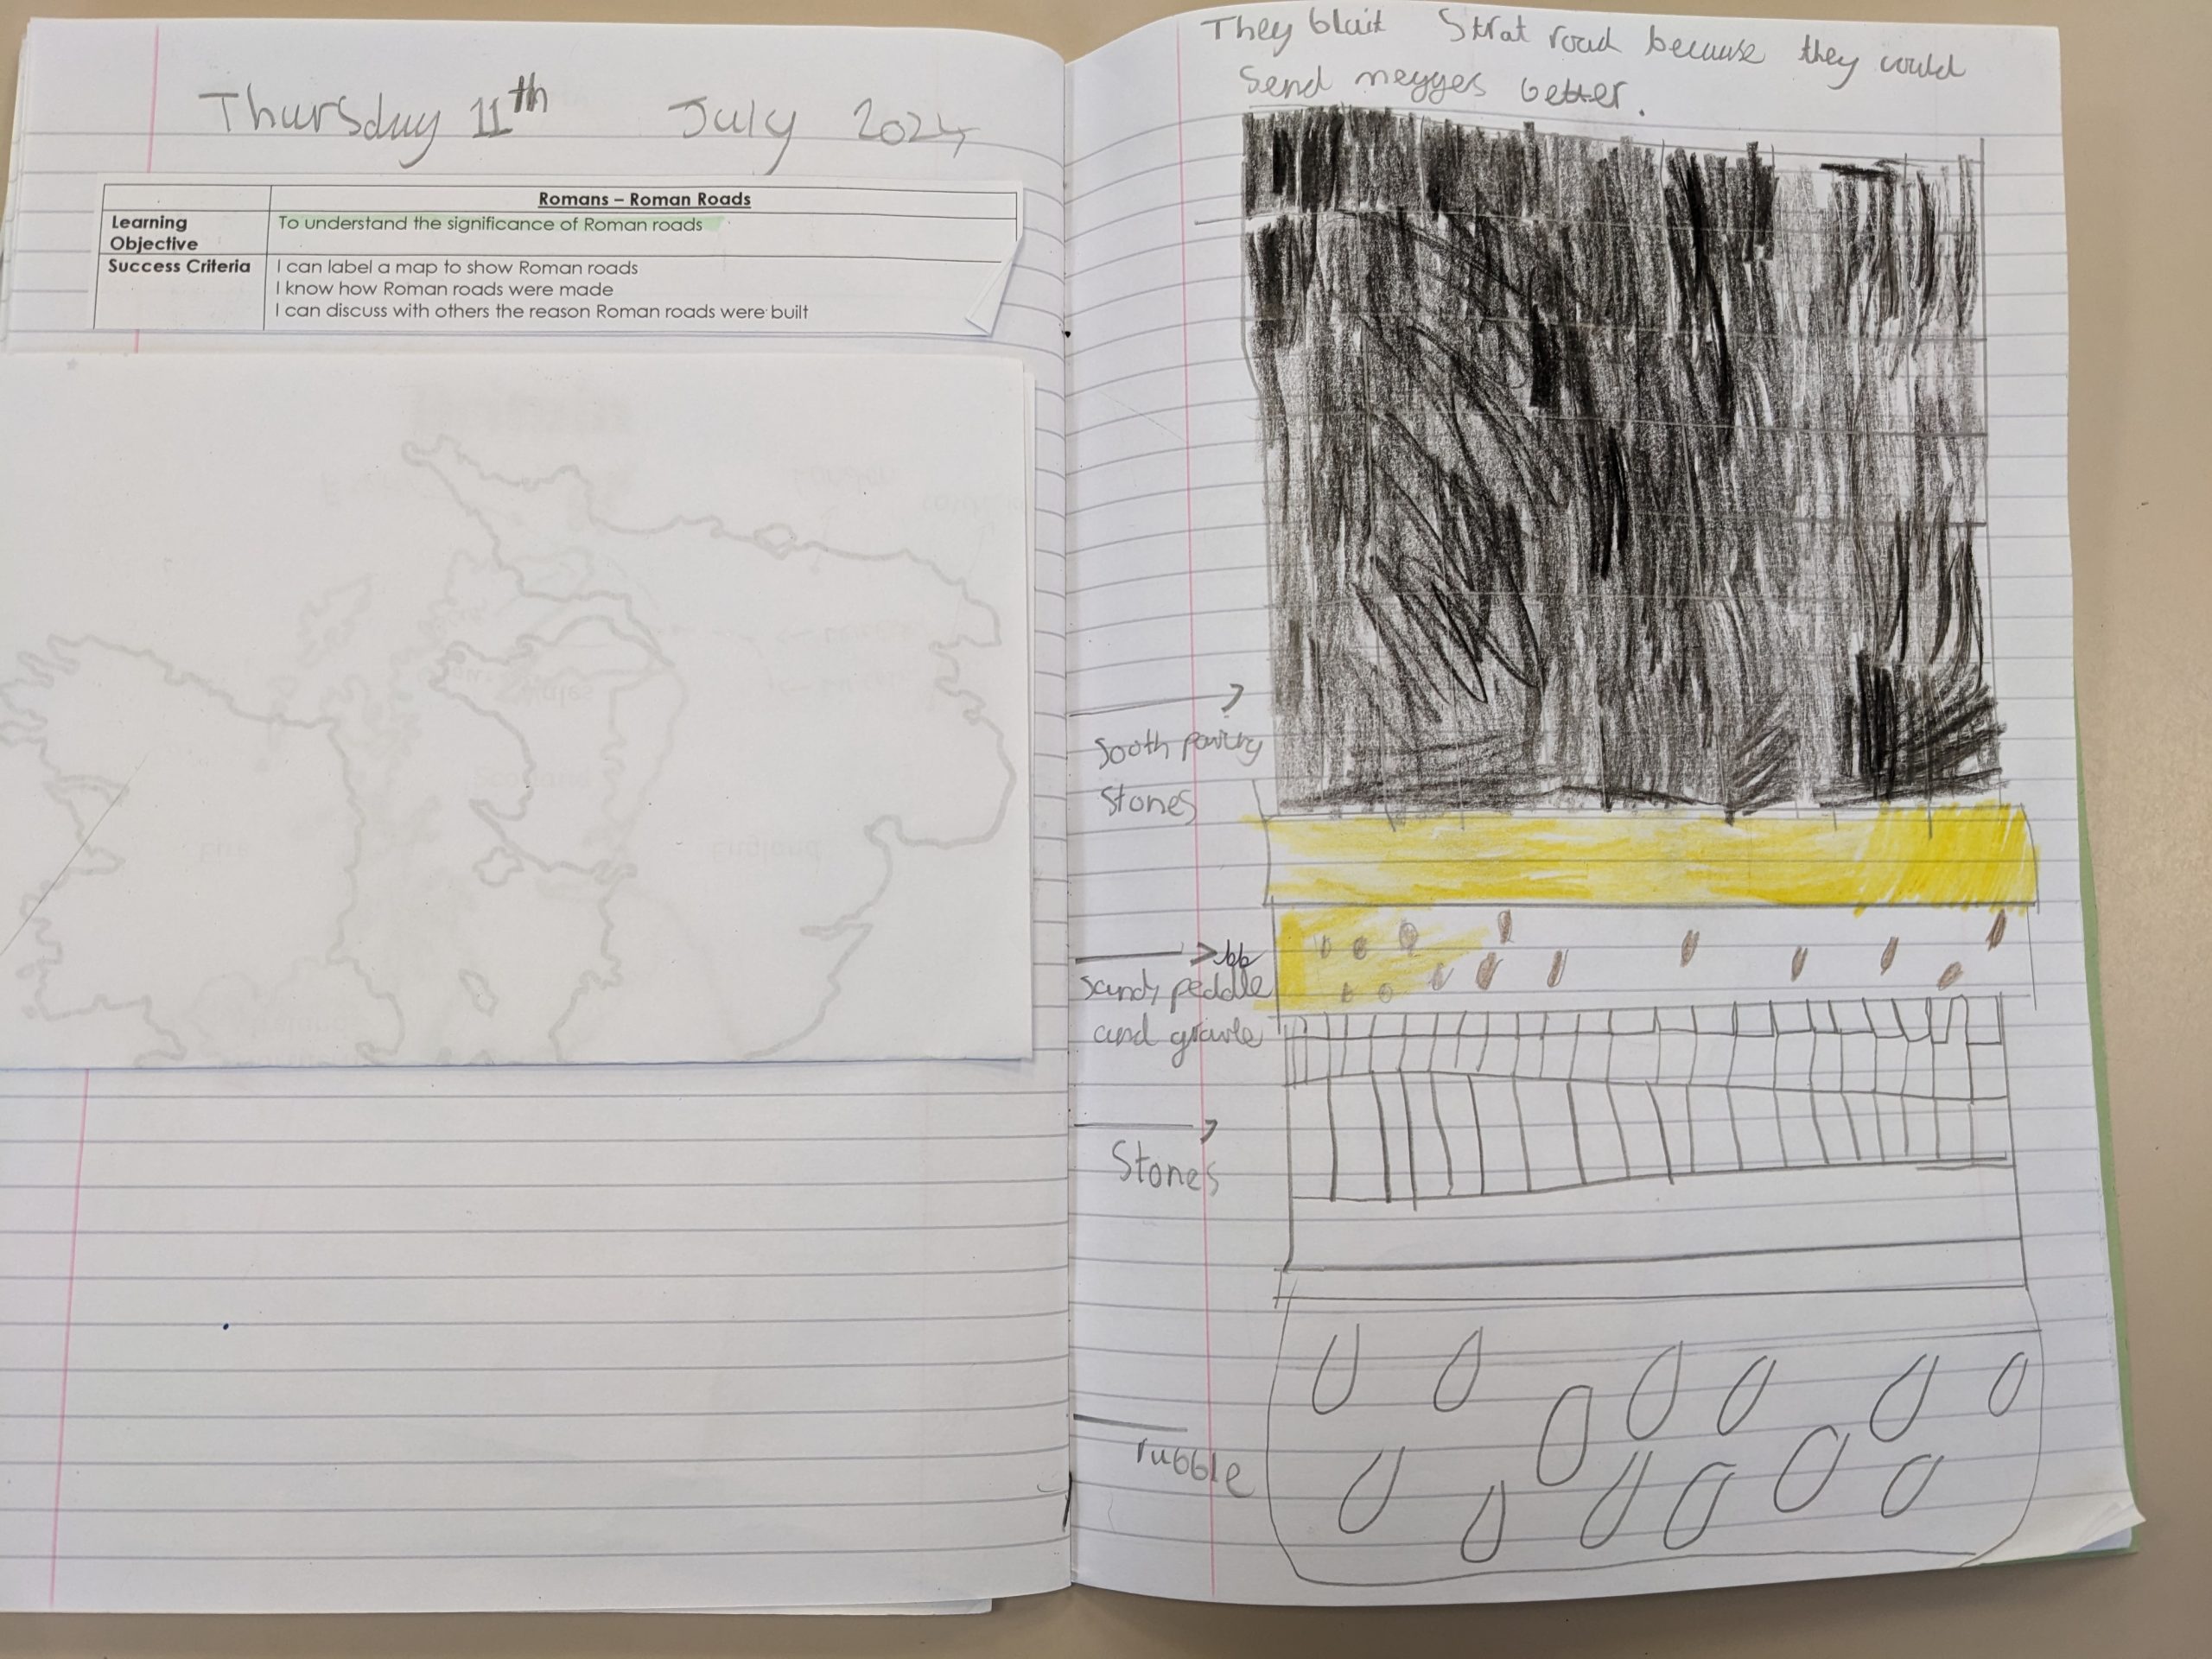 Thursday 11th July 2024
Romans – Roman Roads
Learning Objective
To understand the significance of Roman roads
Success Criteria
I can label a map to show Roman roads
I know how Roman roads were made
I can discuss with others the reason Roman roads were built
They bluit Strat road because they could
send meyges better.
Sooth paving
stones
bb
Sandy peddle
and gravle
Stones
rubble